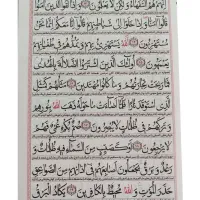 اِنَّهُمْ هُمُ السُّفَهَٓاءُ وَلٰكِنْ لَا يَعْلَمُونَ وَاِذَا لَقُوا الَّذٖينَ اٰمَنُوا
قَالُٓوا اٰمَنَّا وَاِذَا خَلَوْا اِلٰى شَيَاطٖينِهِمْ قَالُٓوا اِنَّا مَعَكُمْ اِنَّمَا نَحْنُ
مُسْتَهْزِؤُنَ اَللّٰهُ يَسْتَهْزِئُ بِهِمْ وَيَمُدُّهُمْ فٖي طُغْيَانِهِمْ
يَعْمَهُونَ اُو۬لٰٓئِكَ الَّذٖينَ اشْتَرَوُا الضَّلَالَةَ بِالْهُدٰى
فَمَا رَبِحَتْ تِجَارَتُهُمْ وَمَا كَانُوا مُهْتَدٖينَ مَثَلُهُمْ كَمَثَلِ
الَّذِي اسْتَوْقَدَ نَارًا فَلَمَّٓا اَضَٓاءَتْ مَا حَوْلَهُ ذَهَبَ اللّٰهُ بِنُورِهِمْ
وَتَرَكَهُمْ فٖي ظُلُمَاتٍ لَا يُبْصِرُونَ صُمٌّ بُكْمٌ عُمْيٌ فَهُمْ
لَا يَرْجِعُونَ اَوْ كَصَيِّبٍ مِنَ السَّمَٓاءِ فٖيهِ ظُلُمَاتٌ وَ
رَعْدٌ وَبَرْقٌ يَجْعَلُونَ اَصَابِعَهُمْ فٖٓي اٰذَانِهِمْ مِنَ الصَّوَاعِقِ
حَذَرَ الْمَوْتِ وَاللّٰهُ مُحٖيطٌ بِالْكَافِرٖينَ يَكَادُ الْبَرْقُ